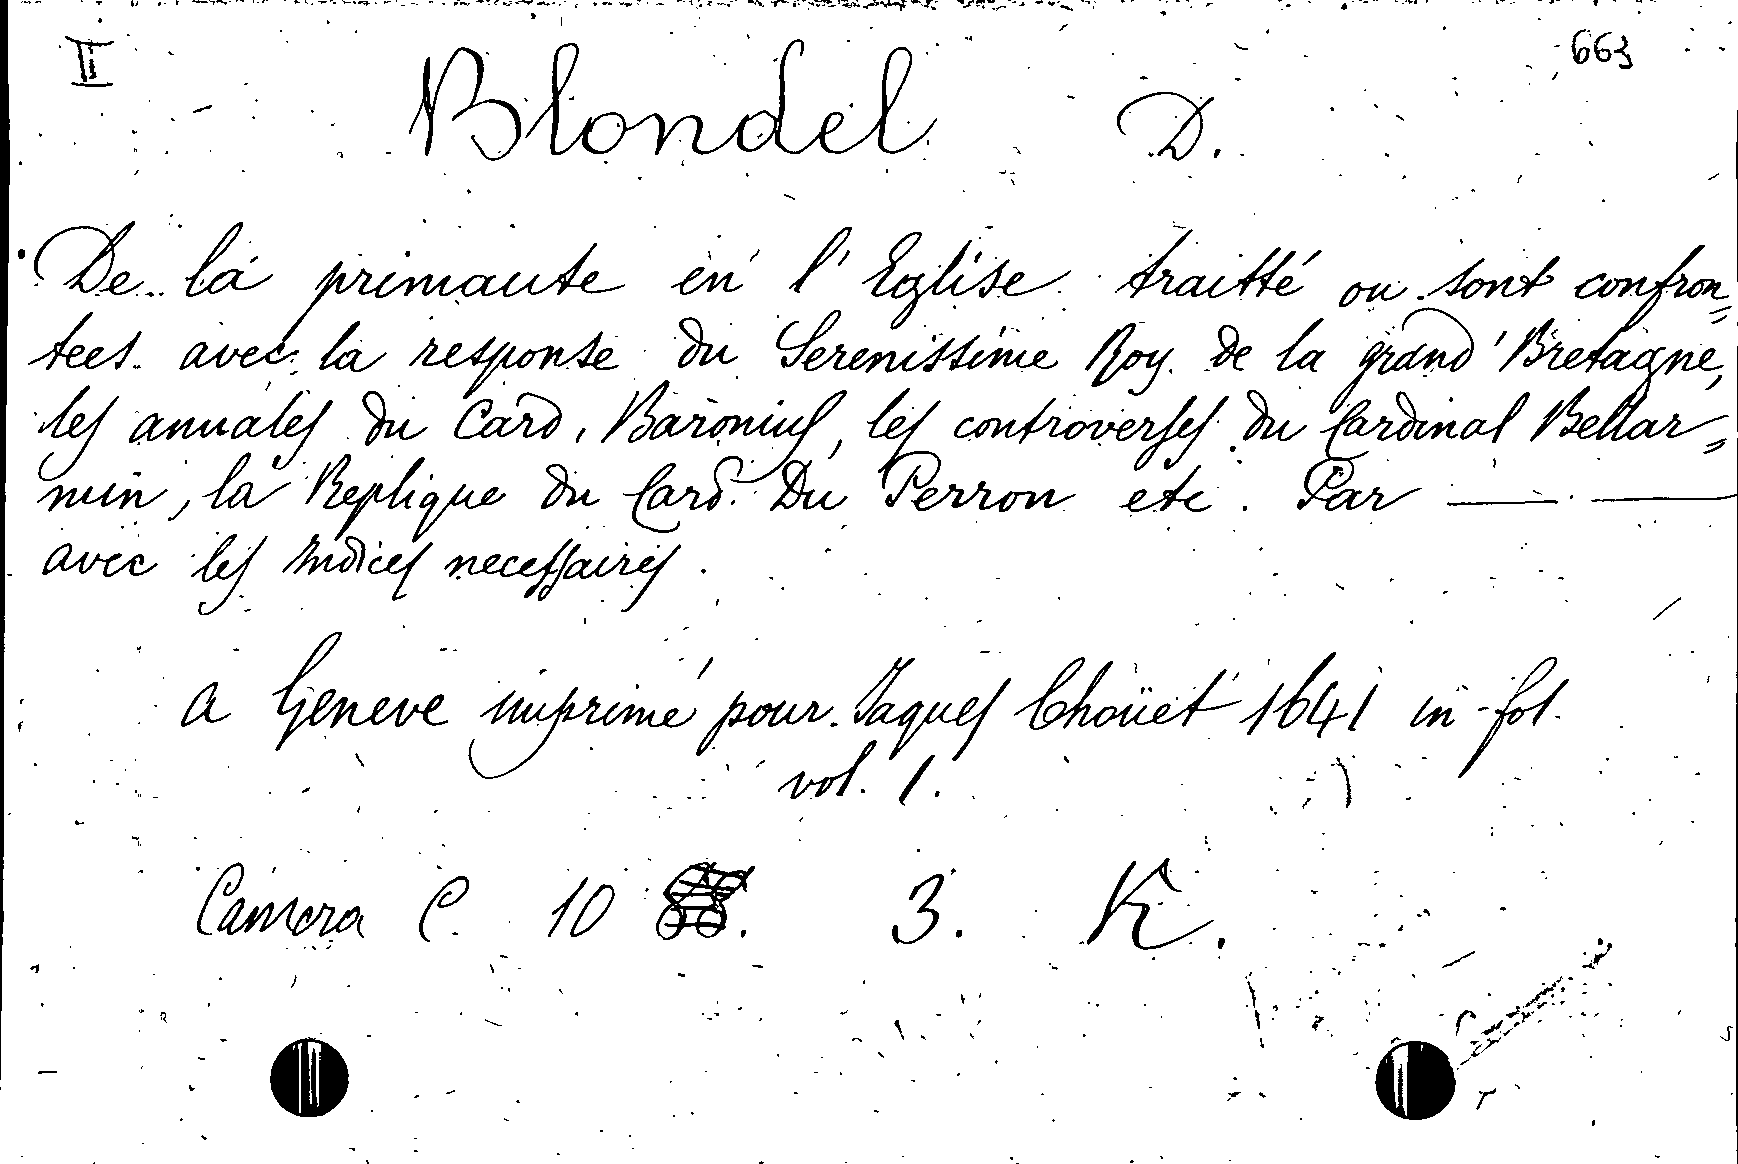 II 663
Blondel D.
De la primaute en l'Eglise traitté ou sont confron=
tees avec la response du Serenissime Roy de la grand'Bretagne,
les annales du Card. Baronius, les controverses du Cardinal Bellar=
min, la Replique du Card. Du Perron etc. Par — —
avec les Indices necessaires.
a Geneve imprimé pour Jaques Choüet 1641 in-fol.
vol. 1.
Camera C. 10 3. K.